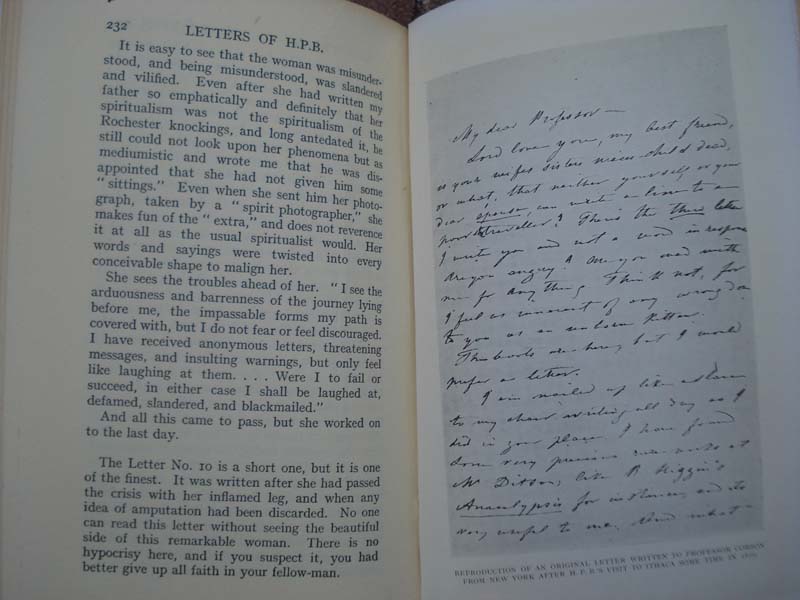 232
LETTERS OF H.P.B.
It is easy to see that the woman was misunder-
stood, and being misunderstood, was slandered
and vilified. Even after she had written my
father so emphatically and definitely that her
spiritualism was not the spiritualism of the
Rochester knockings, and long antedated it, he
still could not look upon her phenomena but as
mediumistic and wrote me that he was dis-
appointed that she had not given him some
" sittings." Even when she sent him her photo-
graph, taken by a " spirit photographer," she
makes fun of the " extra," and does not reverence
it at all as the usual spiritualist would. Her
words and sayings were twisted into every
conceivable shape to malign her.
She sees the troubles ahead of her. " I see the
arduousness and barrenness of the journey lying
before me, the impassable forms my path is
covered with, but I do not fear or feel discouraged.
I have received anonymous letters, threatening
messages, and insulting warnings, but only feel
like laughing at them. . . . Were I to fail or
succeed, in either case I shall be laughed at,
defamed, slandered, and blackmailed."
And all this came to pass, but she worked on
to the last day.
The Letter No. 10 is a short one, but it is one
of the finest. It was written after she had passed
the crisis with her inflamed leg, and when any
idea of amputation had been discarded. No one
can read this letter without seeing the beautiful
side of this remarkable woman. There is no
hypocrisy here, and if you suspect it, you had
better give up all faith in your fellow-man.
My dear Professor —
Lord love you, my best friend,
is your wifes sisters nieces child dead,
or what, that neither yourself or your
dear spouse, can write a line to a
poor traveller? This is the three letter
I write you and not a word in response
Are you angry? Are you mad with
me for any thing Think not, for
I feel as innocent of any wrong done
to you as an unborn kitten.
The books are here, but I would
prefer a letter.
I am nailed up like a slave
to my chair writing all day as I
did in your place. I have found
some very precious at
Mr Ditson, like B Higgin's
Anacalypsis for instance, and its
very useful to me, And what
REPRODUCTION OF AN ORIGINAL LETTER WRITTEN TO PROFESSOR CORSON
FROM NEW YORK AFTER H.P.B.'S VISIT TO ITHACA SOME TIME IN